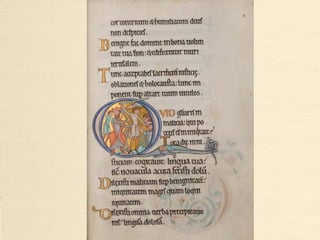 cor contritum & humiliatum deus
non despicies.
Benigne fac domine in bona uolun
tate tua sion: & edificentur muri
ierusalem.
Tunc acceptabis sacrificiũ iusticię
oblationes & holocausta: tunc im
ponent sup altare tuum uitulos.
QVID gl̃iaris in
malicia: qui po
tens es in iniquitate?
Tota die iniu
sticiam cogitauit lingua tua:
sic̃ nouacula acuta fecisti dolũ.
Dilexisti maliciam sup benignitatẽ:
iniquitatem magis quam loqui
equitatem.
Dilexisti omnia uerba precipitatio
nis: lingua dolosa.